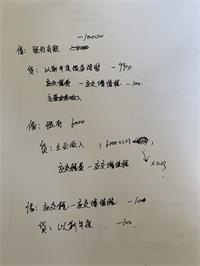 借：银行存款 -10000
贷：以前年度损益调整 -9900
应交税费 — 应交增值税 -100
借：银行 6000
贷：主业收入
应交税费 — 应交增值税
借：应交税 — 应交增值税 -100
贷：以前年度 -100